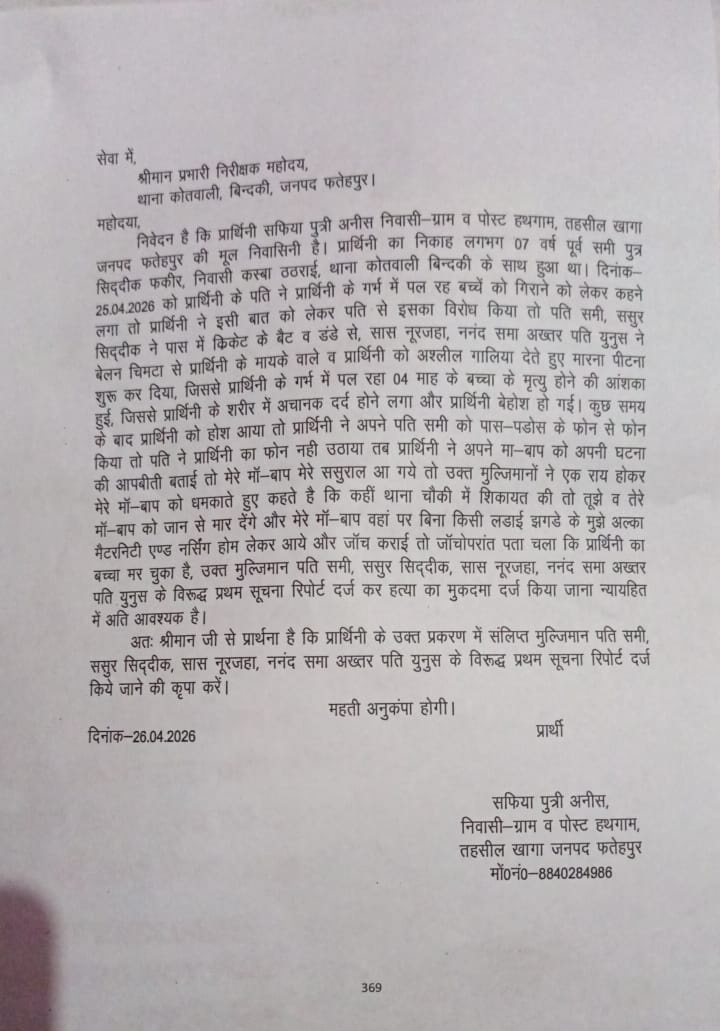 सेवा में,
श्रीमान प्रभारी निरीक्षक महोदय,
थाना कोतवाली, बिन्दकी, जनपद फतेहपुर।
महोदया,
निवेदन है कि प्रार्थिनी सफिया पुत्री अनीस निवासी–ग्राम व पोस्ट हथगाम, तहसील खागा
जनपद फतेहपुर की मूल निवासिनी है। प्रार्थिनी का निकाह लगभग 07 वर्ष पूर्व समी पुत्र
सिद्दीक फकीर, निवासी कस्बा उठराई, थाना कोतवाली बिन्दकी के साथ हुआ था। दिनांक–
25.04.2026 को प्रार्थिनी के पति ने प्रार्थिनी के गर्भ में पल रह बच्चें को गिराने को लेकर कहने
लगा तो प्रार्थिनी ने इसी बात को लेकर पति से इसका विरोध किया तो पति समी, ससुर
सिद्दीक ने पास में किकेट के बैट व डंडे से, सास नूरजहा, ननंद समा अख्तर पति युनुस ने
बेलन चिमटा से प्रार्थिनी के मायके वाले व प्रार्थिनी को अश्लील गालिया देते हुए मारना पीटना
शुरू कर दिया, जिससे प्रार्थिनी के गर्भ में पल रहा 04 माह के बच्चा के मृत्यु होने की आंशका
हुई, जिससे प्रार्थिनी के शरीर में अचानक दर्द होने लगा और प्रार्थिनी बेहोश हो गई। कुछ समय
के बाद प्रार्थिनी को होश आया तो प्रार्थिनी ने अपने पति समी को पास–पडोस के फोन से फोन
किया तो पति ने प्रार्थिनी का फोन नही उठाया तब प्रार्थिनी ने अपने मा–बाप को अपनी घटना
की आपबीती बताई तो मेरे मॉ–बाप मेरे ससुराल आ गये तो उक्त मुल्जिमानों ने एक राय होकर
मेरे मॉ–बाप को धमकाते हुए कहते है कि कहीं थाना चौकी में शिकायत की तो तूझे व तेरे
मॉ–बाप को जान से मार देंगे और मेरे मॉ–बाप वहां पर बिना किसी लडाई झगडे के मुझे अल्का
मैटरनिटी एण्ड नर्सिंग होम लेकर आये और जॉच कराई तो जॉचोपरांत पता चला कि प्रार्थिनी का
बच्चा मर चुका है, उक्त मुल्जिमान पति समी, ससुर सिद्दीक, सास नूरजहा, ननंद समा अख्तर
पति युनुस के विरूद्ध प्रथम सूचना रिपोर्ट दर्ज कर हत्या का मुकदमा दर्ज किया जाना न्यायहित
में अति आवश्यक है।
अतः श्रीमान जी से प्रार्थना है कि प्रार्थिनी के उक्त प्रकरण में संलिप्त मुल्जिमान पति समी,
ससुर सिद्दीक, सास नूरजहा, ननंद समा अख्तर पति युनुस के विरूद्ध प्रथम सूचना रिपोर्ट दर्ज
किये जाने की कृपा करें।
महती अनुकंपा होगी।
दिनांक–26.04.2026 प्रार्थी
सफिया पुत्री अनीस,
निवासी–ग्राम व पोस्ट हथगाम,
तहसील खागा जनपद फतेहपुर
मों0नं0–8840284986
369